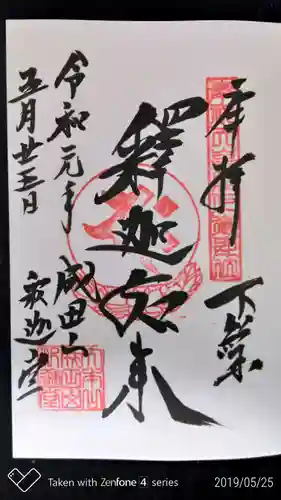 奉拝
下総
釈迦如来
令和元年
五月廿五日
成田山
釈迦堂
Taken with Zenfone 4 series
2019/05/25